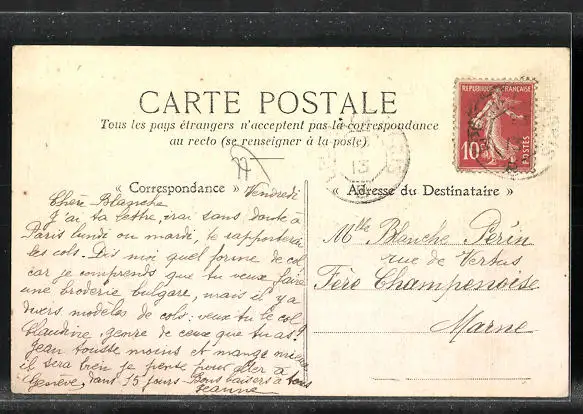 CARTE POSTALE
Tous les pays étrangers n'acceptent pas la correspondance
au recto (se renseigner à la poste)
« Correspondance »
Vendredi
Chère Blanche
J'ai ta lettre, irai sans doute à
Paris lundi ou mardi, te rapporterai
les cols. Dis moi quel forme de col
car je comprends que tu veux faire
une broderie bulgare, mais il y a
divers modèles de cols: veux-tu le col
Claudine, genre de ceux que tu as?
Jean tousse moins et mange mieux
il sera bien je pense pour aller à
Genève, dans 15 jours - Bons baisers à tous
Jeanne
« Adresse du Destinataire »
Mlle Blanche Perin
rue de Vertus
Fère Champenoise
Marne
REPUBLIQUE FRANÇAISE
10
POSTES
13